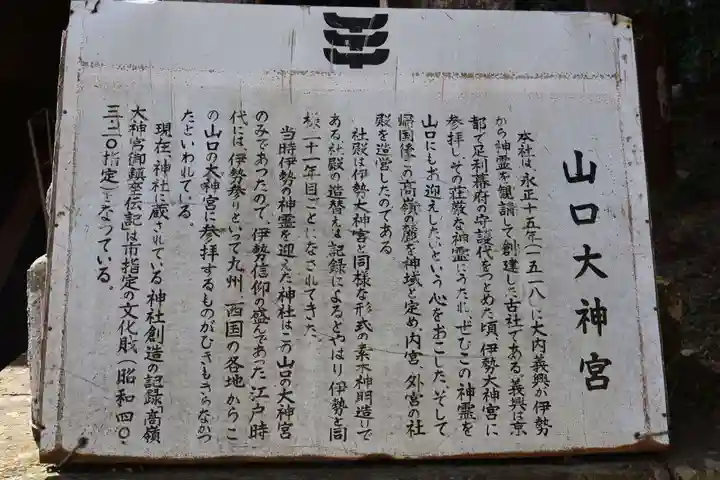 山口大神宮
本社は永正十五年(一五一八)に大内義興が伊勢
から神霊を観請して創建した古社である。義興は京
都で足利幕府の守護代をつとめた頃、伊勢大神宮に
参拝しその荘厳な神霊にうたれ、ぜひこの神霊を
山口にもお迎えしたいという心をおこした。そして
帰国後この高嶺の麓を神域と定め、内宮、外宮の社
殿を造営したのである
社殿は伊勢大神宮と同様な形式の素木神明造りで
ある社殿の造替えは記録によるとやはり伊勢と同
様二十一年目ごとになされてきた。
当時伊勢の神霊を迎えた神社はこの山口の大神宮
のみであつたので、伊勢信仰の盛んであった江戸時
代には、伊勢参りといって九州、西国の各地からこ
の山口の大神宮に参拝するものがひきもきらなかっ
たといわれている。
現在、神社に蔵されている神社創造の記録「高嶺
大神宮御鎮座伝記」は市指定の文化財(昭和四〇・
三・二〇指定)となっている。